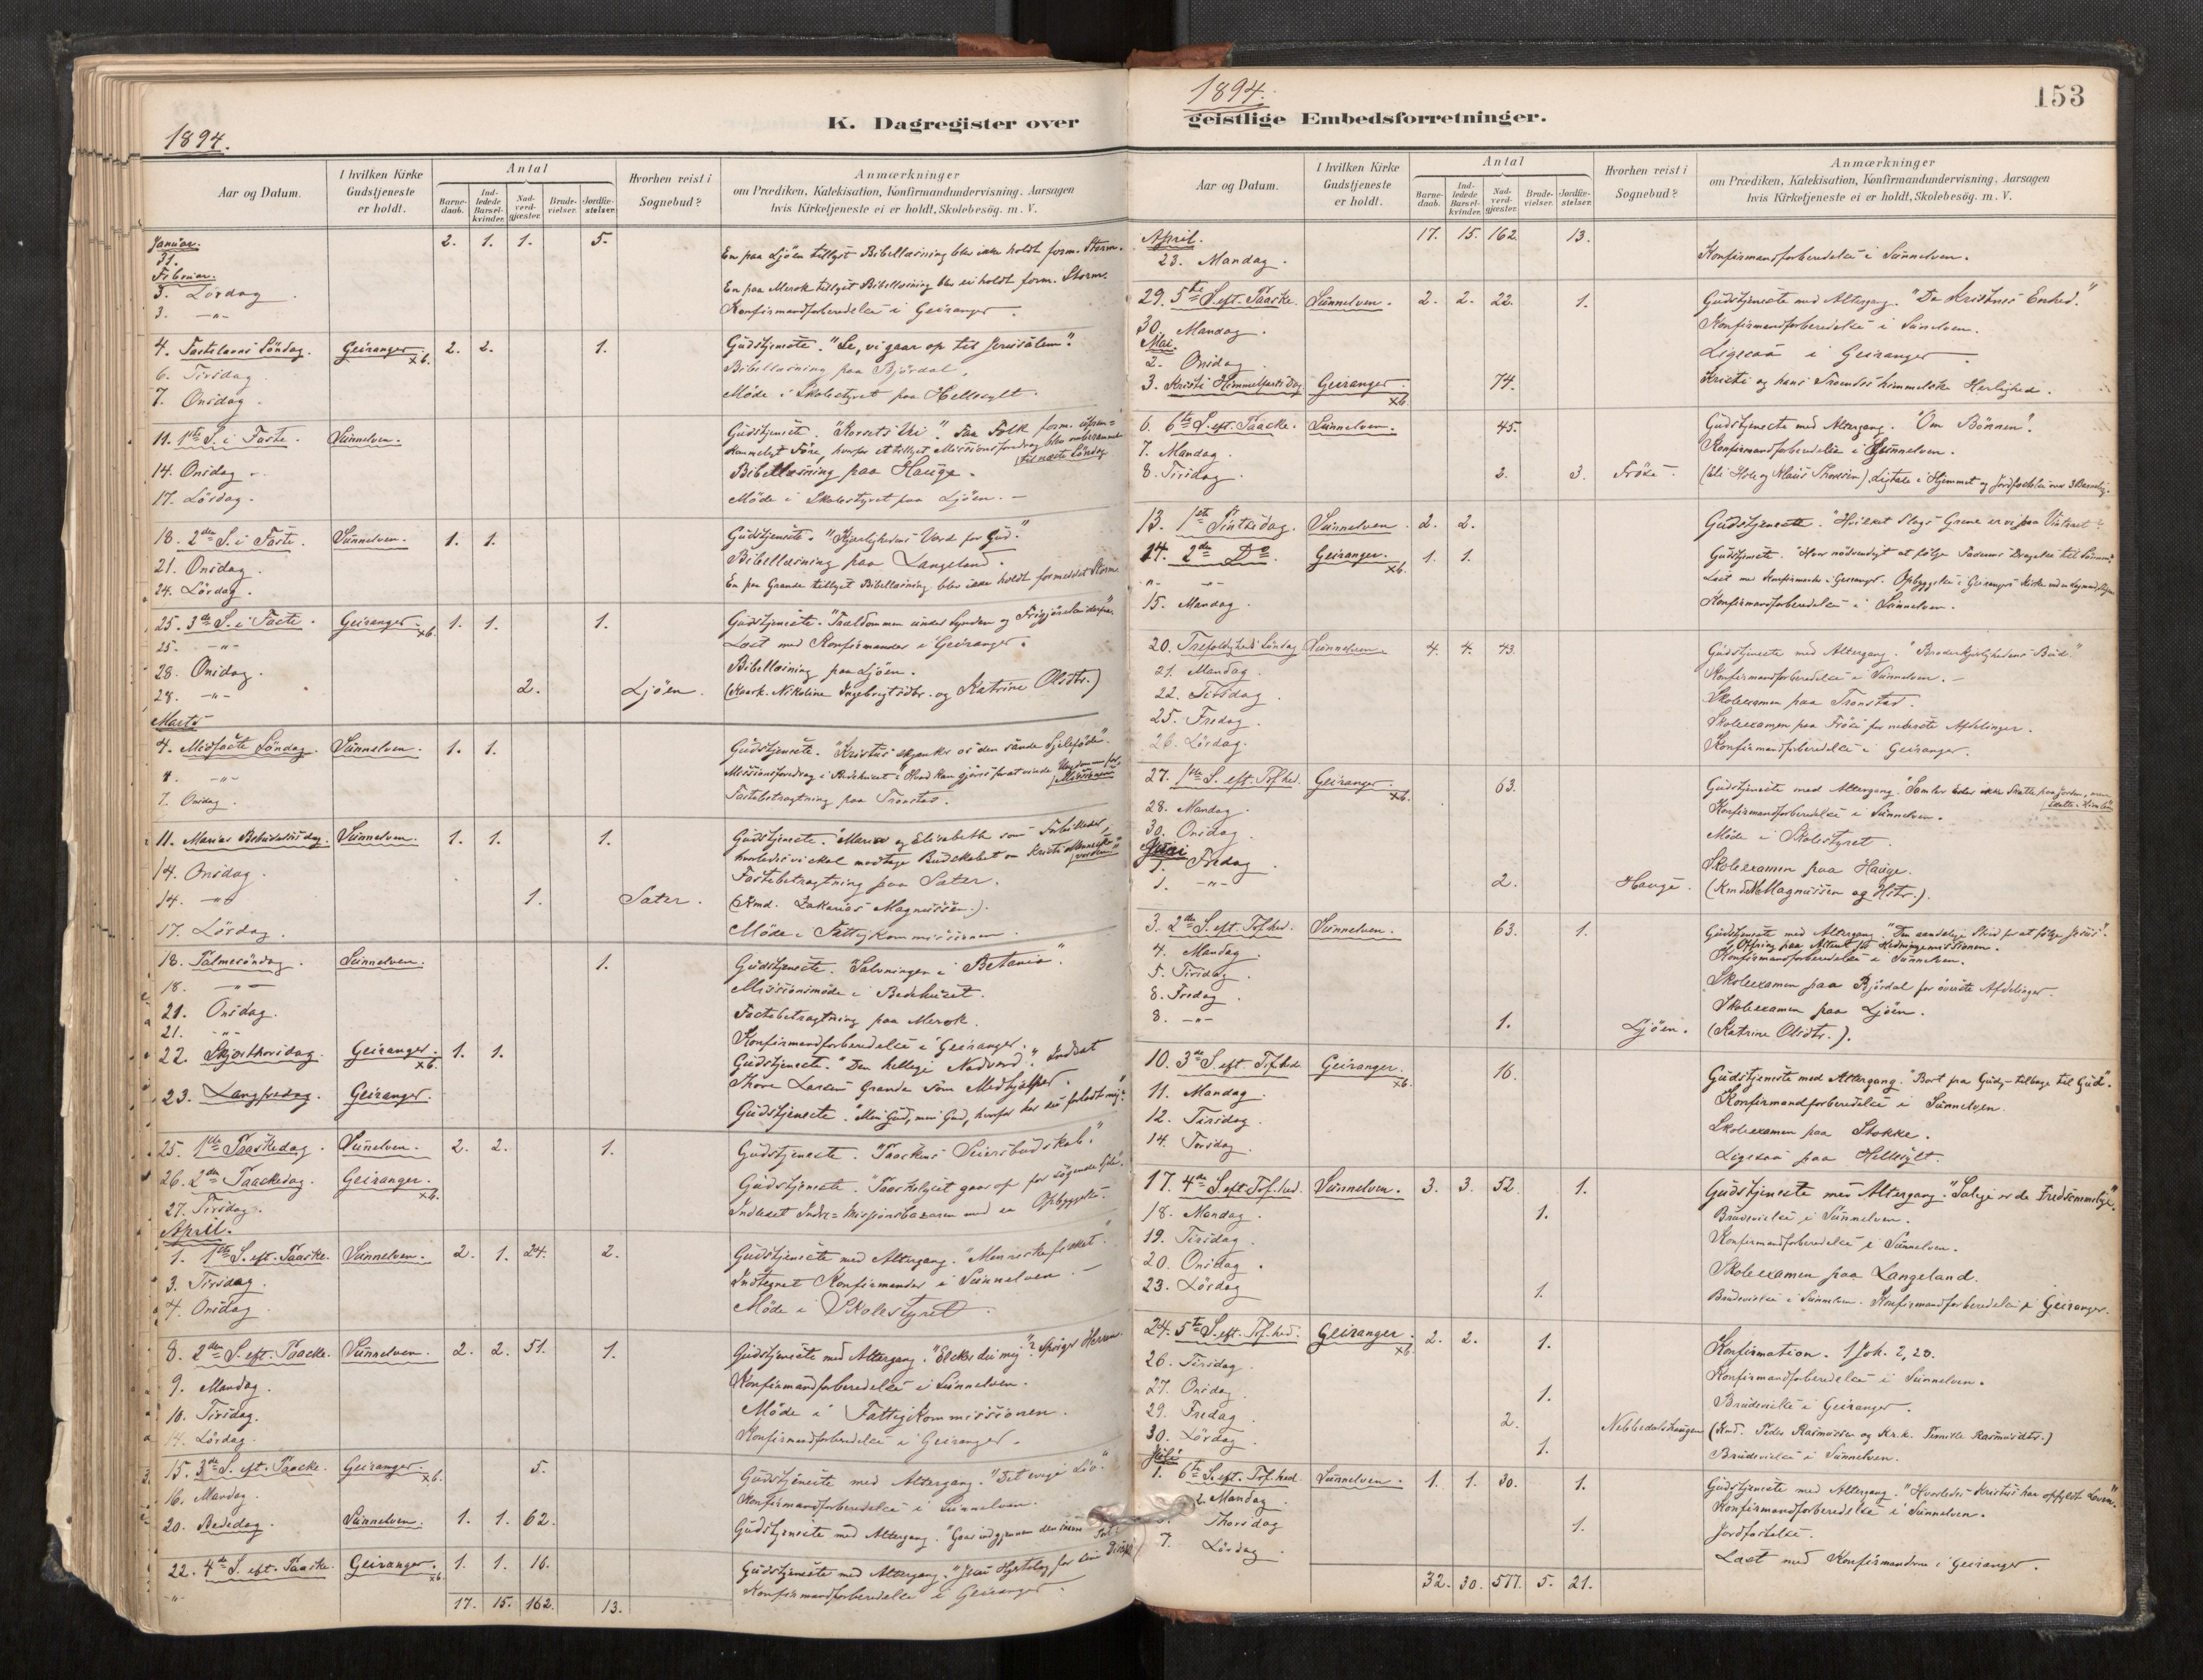 1894.
K. Dagregister over
Aar og Datum.
I hvilken Kirke Gudstjeneste er holdt.
Antal
Barne-daab.
Ind-ledede Barsel-kvinder.
Nad-verd-gjæster.
Brude-vielser.
Jordfæ-stelser.
Hvorhen reist i Sognebud?
Anmærkninger
om Prædiken, Katekisation, Konfirmandundervisning. Aarsagen
hvis Kirketjeneste ei er holdt, Skolebesøg. m. V.
Januar. 2. 1. 1. 5.
31. En paa Ljöen tillyst Bibellæsning blev ikke holdt form. Storm.
Februar.
3. Lördag. En paa Merok tillyst Bibellæsning blev ei holdt form. Storm.
3. -"- Konfirmandforberedelse i Geiranger.
4. Fastelavns Söndag. Geiranger. x6. 2. 2. 1. Gudstjeneste. "Se, vi gaar op til Jerusalem".
6. Tirsdag. Bibellæsning paa Björdal.
7. Onsdag. Möde i Skolestyret paa Hellesylt.
11. 1ste S. i Faste. Sunnelven. Gudstjeneste. "Korsets Vei". Faa Folk form.
hvorfor et tillyst Missionsforedrag blev
til næste Söndag
14. Onsdag. Bibellæsning paa Hauge.
17. Lördag. Möde i Skolestyret paa Ljöen. -
18. 2den S. i Faste. Sunnelven. 1. 1. Gudstjeneste. "Kjærlighedens Værd for Gud".
21. Onsdag. Bibellæsning paa Langeland.
24. Lördag. En paa Grande tillyst Bibellæsning blev ikke holdt formedelst Storm
25. 3die S. i Faste. Geiranger. x6. 1. 1. 1. Gudstjeneste. "Trældommen under Synden og Frigjörelsen derfra".
25. -"- Læst med Konfirmander i Geiranger.
28. Onsdag. Bibellæsning paa Ljöen.
28. -"- 2. Ljöen. (Kaark. Nikoline Ingebrigtsdtr. og Katrine Olsdtr.)
Marts
4. Midfaste Söndag. Sunnelven. 1. 1. Gudstjeneste. "Kristus skjenker os den sande Sjeleföde".
4. -"- Missionsforedrag i Bedehuset: "Hvad kan gjöres for at vinde Ungdommen for
Missionen"
7. Onsdag. Fastebetragtning paa Tronstad.
11. Marias Bebudelsesdag. Sunnelven. 1. 1. 1. Gudstjeneste. "Maria og Elisabeth som Forbilleder,
hvorledes vi skal modtage Budskabet om Kristi Menneske-
vorden"
14. Onsdag. Fastebetragtning paa Sater.
14. -"- 1. Sater. (Kmd. Zakarias Magnussen.).
17. Lördag. Möde i Fattigkommissionen.
18. Palmesöndag. Sunnelven. 1. Gudstjeneste. "Salvningen i Betania".
18. -"- Missionsmöde i Bedehuset.
21. Onsdag. Fastebetragtning paa Merok.
21. -"- Konfirmandforberedelse i Geiranger.
22. Skjærthorsdag. Geiranger. x6. 1. 1. Gudstjeneste. "Den hellige Nadverd". Indsat
Thore Larsen Grande som Medhjælper.
23. Langfredag. Geiranger. Gudstjeneste. "Min Gud, min Gud, hvorfor har du forladt mig".
25. 1ste Paaskedag. Sunnelven. 2. 2. 1. Gudstjeneste. "Paaskens Seiersbudskab".
26. 2den Paaskedag. Geiranger. x6. Gudstjeneste. "Paaskelyset gaar op for sögende Sjæle".
27. Tirsdag. Indledet Indre-Missionsbazaren med en Opbyggelse.
April.
1. 1ste S. eft. Paaske. Sunnelven. 2. 1. 24. 2. Gudstjeneste med Altergang. "Menneskefisket".
3. Tirsdag. Indtegnet Konfirmander i Sunnelven. -
4. Onsdag. Möde i Skolestyret.
8. 2den S. eft. Paaske. Sunnelven. 2. 2. 51. 1. Gudstjeneste med Altergang. "Elsker du mig"? spörger Herren.
9. Mandag. Konfirmandforberedelse i Sunnelven.
10. Tirsdag. Möde i Fattigkommissionen.
14. Lördag. Konfirmandforberedelse i Geiranger.
15. 3die S. eft. Paaske. Geiranger. x6. 5. Gudstjeneste med Altergang. "Det evige Liv".
16. Mandag. Konfirmandforberedelse i Sunnelven.
20. Bededag. Sunnelven. 1. 1. 62. Gudstjeneste med Altergang. "Gaar ind gjennem den snevre
22. 4de S. eft. Paaske. Geiranger. x6. 1. 1. 16. Gudstjeneste med Altergang. "Jesu Hjertelag for sine
-"- Konfirmandforberedelse i Geiranger.
17. 15. 162. 13.
1894.
153
geistlige Embedsforretninger.
Aar og Datum.
I hvilken Kirke Gudstjeneste er holdt.
Antal
Barne-daab.
Ind-ledede Barsel-kvinder.
Nad-verd-gjæster.
Brude-vielser.
Jordfæ-stelser.
Hvorhen reist i Sognebud?
Anmærkninger
om Prædiken, Katekisation, Konfirmandundervisning, Aarsagen
hvis Kirketjeneste ei er holdt, Skolebesøg. m. V.
April. 17. 15. 162. 13.
23. Mandag. Konfirmandforberedelse i Sunnelven.
29. 5te S. eft. Paaske. Sunnelven. 2. 2. 22. 1. Gudstjeneste med Altergang. "De Kristnes Enhed."
30. Mandag. Konfirmandforberedelse i Sunnelven.
Mai.
2. Onsdag. Ligesaa i Geiranger.
3. Kristi Himmelfartsdag. Geiranger. x6. 74. Kristi og hans Troendes himmelske Herlighed.
6. 6te S. eft. Paaske. Sunnelven. 45. Gudstjeneste med Altergang. "Om Bönnen".
7. Mandag. Konfirmandforberedelse i Sunnelven.
8. Tirsdag. 2. 3. Fröse. (Eli Hole og Klaus Thorsen). Ligtale i Hjemmet og Jordfæstelse over 3
13. 1ste Pintsedag. Sunnelven. 2. 2. Gudstjeneste. "Hvilket Slags Grene er vi paa Vintræet".
14. 2den Do. Geiranger. x6. 1. 1. Gudstjeneste. "Hvor nödvendigt at fölge Faderens Dragelse til Sönnen".
-"- -"- Læst med Konfirmander i Geiranger. Opbyggelse i Geiranger Kirke
15. Mandag. Konfirmandforberedelse i Sunnelven.
20. Trefoldigheds Söndag Sunnelven. 4. 4. 43. Gudstjeneste med Altergang. "Broderkjærlighedens Bud."
21. Mandag. Konfirmandforberedelse i Sunnelven. -
22. Tirsdag. Skoleexamen paa Tronstad.
25. Fredag. Skoleexamen paa Fröse for nederste Afdelinger.
26. Lördag. Konfirmandforberedelse i Geiranger.
27. 1ste S. eft. Tref.hed. Geiranger. x6. 63. Gudstjeneste med Altergang. "Samler Eder ikke Skatte paa Jorden, men
Skatte i Himlen"
28. Mandag. Konfirmandforberedelse i Sunnelven.
30. Onsdag. Möde i Skolestyret.
Juni
1. Fredag. Skoleexamen paa Hauge.
1. -"- 2. Hauge. (Kmd. M. Magnussen og Hstr.).
3. 2den S. eft. Tref.hed. Sunnelven. 63. 1. Gudstjeneste med Altergang. "Den aandelige Död for at fölge Jesus".
Ofring paa Alteret til Hedningemissionen.
4. Mandag. Konfirmandforberedelse i Sunnelven.
5. Tirsdag. Skoleexamen paa Björdal for överste Afdelinger.
8. Fredag. Skoleexamen paa Ljöen.
8. -"- 1. Ljöen. (Katrine Olsdtr.).
10. 3die S. eft. Tref.hed. Geiranger. x6. 16. Gudstjeneste med Altergang. "Bort fra Gud - tilbage til Gud".
11. Mandag. Konfirmandforberedelse i Sunnelven.
12. Tirsdag. Skoleexamen paa Stokke.
14. Torsdag. Ligesaa paa Hellesylt.
17. 4de S. eft. Tref.hed. Sunnelven. 3. 3. 52. 1. Gudstjeneste med Altergang. "Salige er de Fredsommelige".
18. Mandag. 1. Brudevielse i Sunnelven.
19. Tirsdag. Konfirmandforberedelse i Sunnelven.
20. Onsdag. Skoleexamen paa Langeland.
23. Lördag. 1. Brudevielse i Sunnelven. Konfirmandforberedelse i Geiranger.
24. 5te S. eft. Tref.hed. Geiranger. x6. 2. 2. 1. Konfirmation. 1 Joh. 2,28.
26. Tirsdag. Konfirmandforberedelse i Sunnelven.
27. Onsdag. 1. Brudevielse i Geiranger.
29. Fredag. 2. Nebbedalshaugen (Kmd. Peder Rasmussen og Kr.k. Pernille Rasmusdtr.)
30. Lördag. 1. Brudevielse i Sunnelven.
Juli
1. 6te S. eft. Tref.hed. Sunnelven. 1. 1. 30. 1. Gudstjeneste med Altergang. "Hvorledes Kristus har opfyldt Loven".
2. Mandag. Konfirmandforberedelse i Sunnelven.
Thorsdag 1. Jordfæstelse.
7. Lördag Læst med Konfirmanderne i Geiranger.
32. 30. 577. 5. 21.